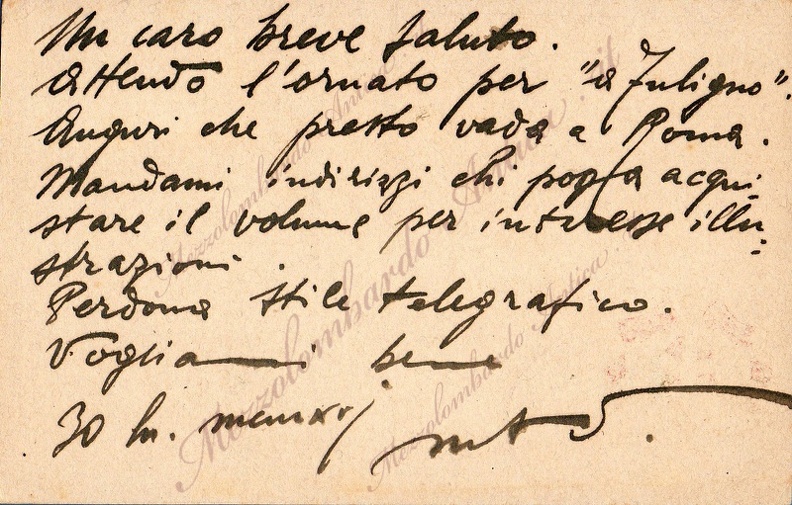 Un caro breve saluto.
Attendo l'ornato per "a Fuligno".
Auguri che presto vada a Roma.
Mandami indirizzi chi possa acqui-
stare il volume per interesse illu-
strazioni.
Perdona stile telegrafico.
Vogliami bene
30
Mezzolombardo Antica
Mezzolombardo Antica .it
Mezzolombardo Antica